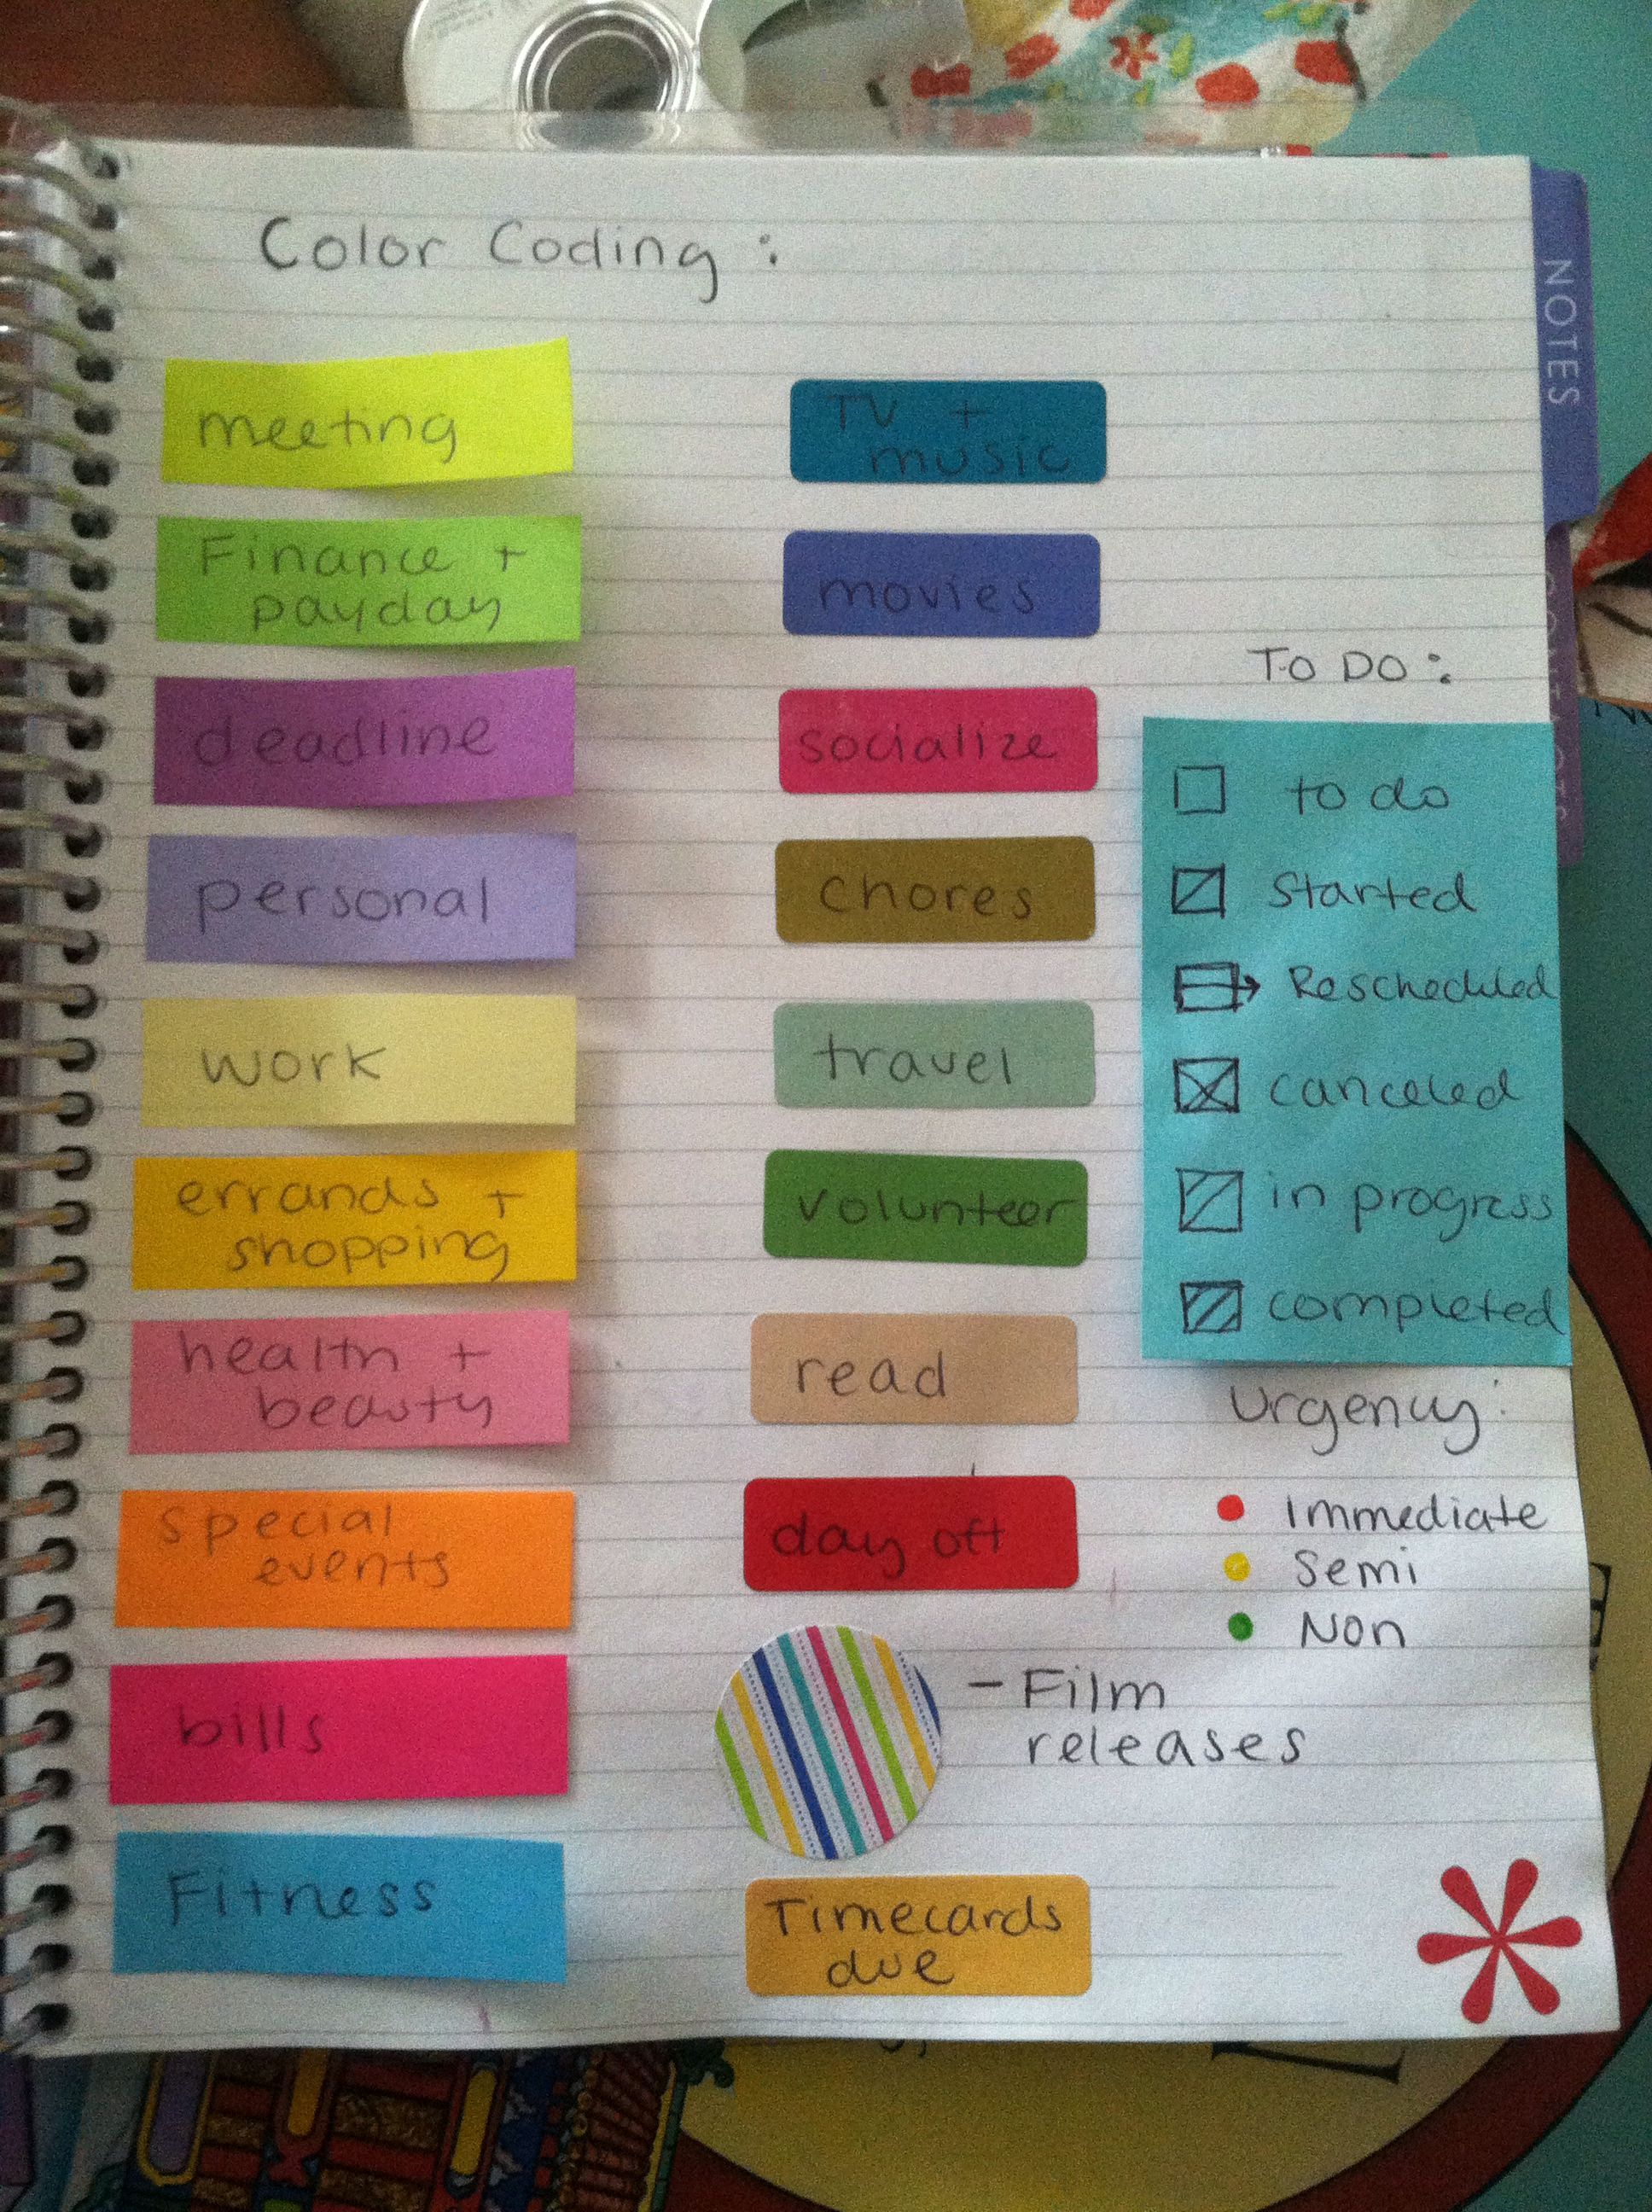 Color Coding :
meeting
Finance +
payday
deadline
personal
work
errands +
shopping
health +
beauty
special
events
bills
Fitness
TV +
music
movies
socialize
chores
travel
volunteer
read
day off
- Film
releases
Timecards
due
TO DO :
to do
Started
Rescheduled
canceled
in progress
completed
Urgency:
Immediate
Semi
Non
NOTES